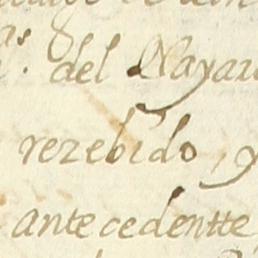 del Nayari
rezebido, y
antecedentte